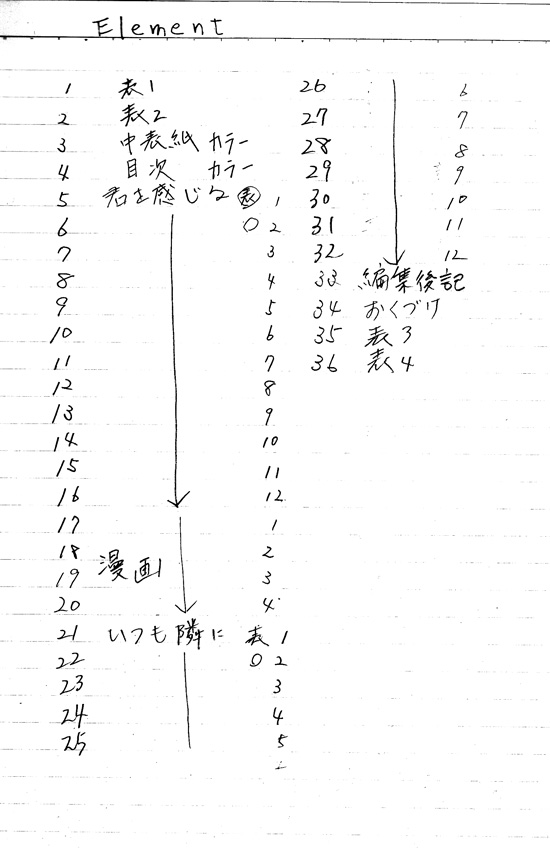 Element
1 表1
2 表2
3 中表紙 カラー
4 目次 カラー
5 君を感じる 表 1
6 ○ 2
7 3
8 4
9 5
10 6
11 7
12 8
13 9
14 10
15 11
16 12
17 1
18 漫画 2
19 3
20 4
21 いつも隣に 表 1
22 ○ 2
23 3
24 4
25 5
26 6
27 7
28 8
29 9
30 10
31 11
32 12
33 編集後記
34 おくづけ
35 表3
36 表4